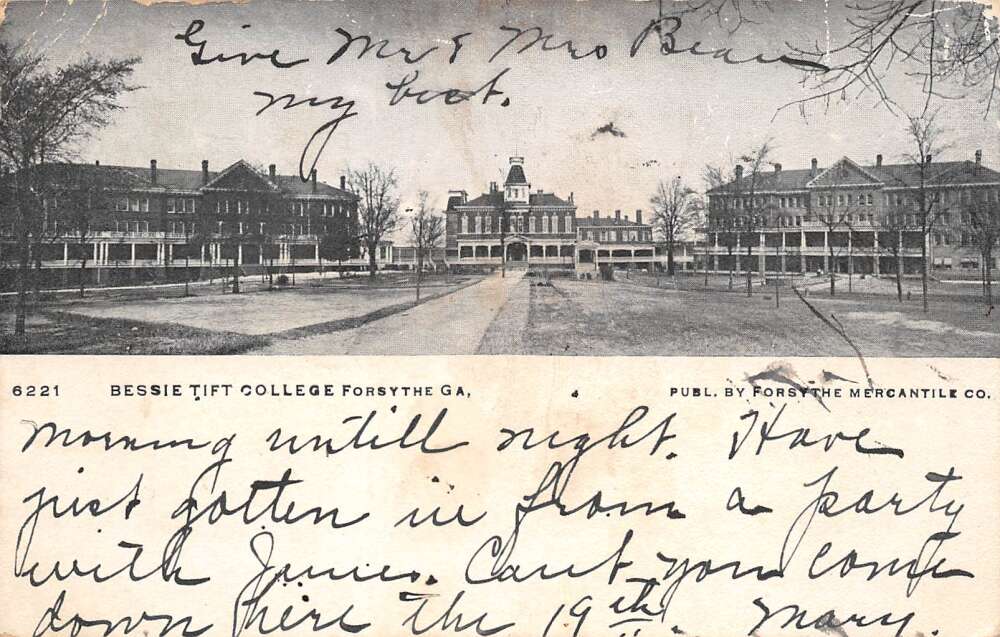 Give Mr & Mrs Bean
my best.
6221 BESSIE TIFT COLLEGE FORSYTHE GA, PUBL. BY FORSYTHE MERCANTILE CO.
morning untill night. Have
just gotten in from a party
with Can't you come
down here the 19th. Mary.